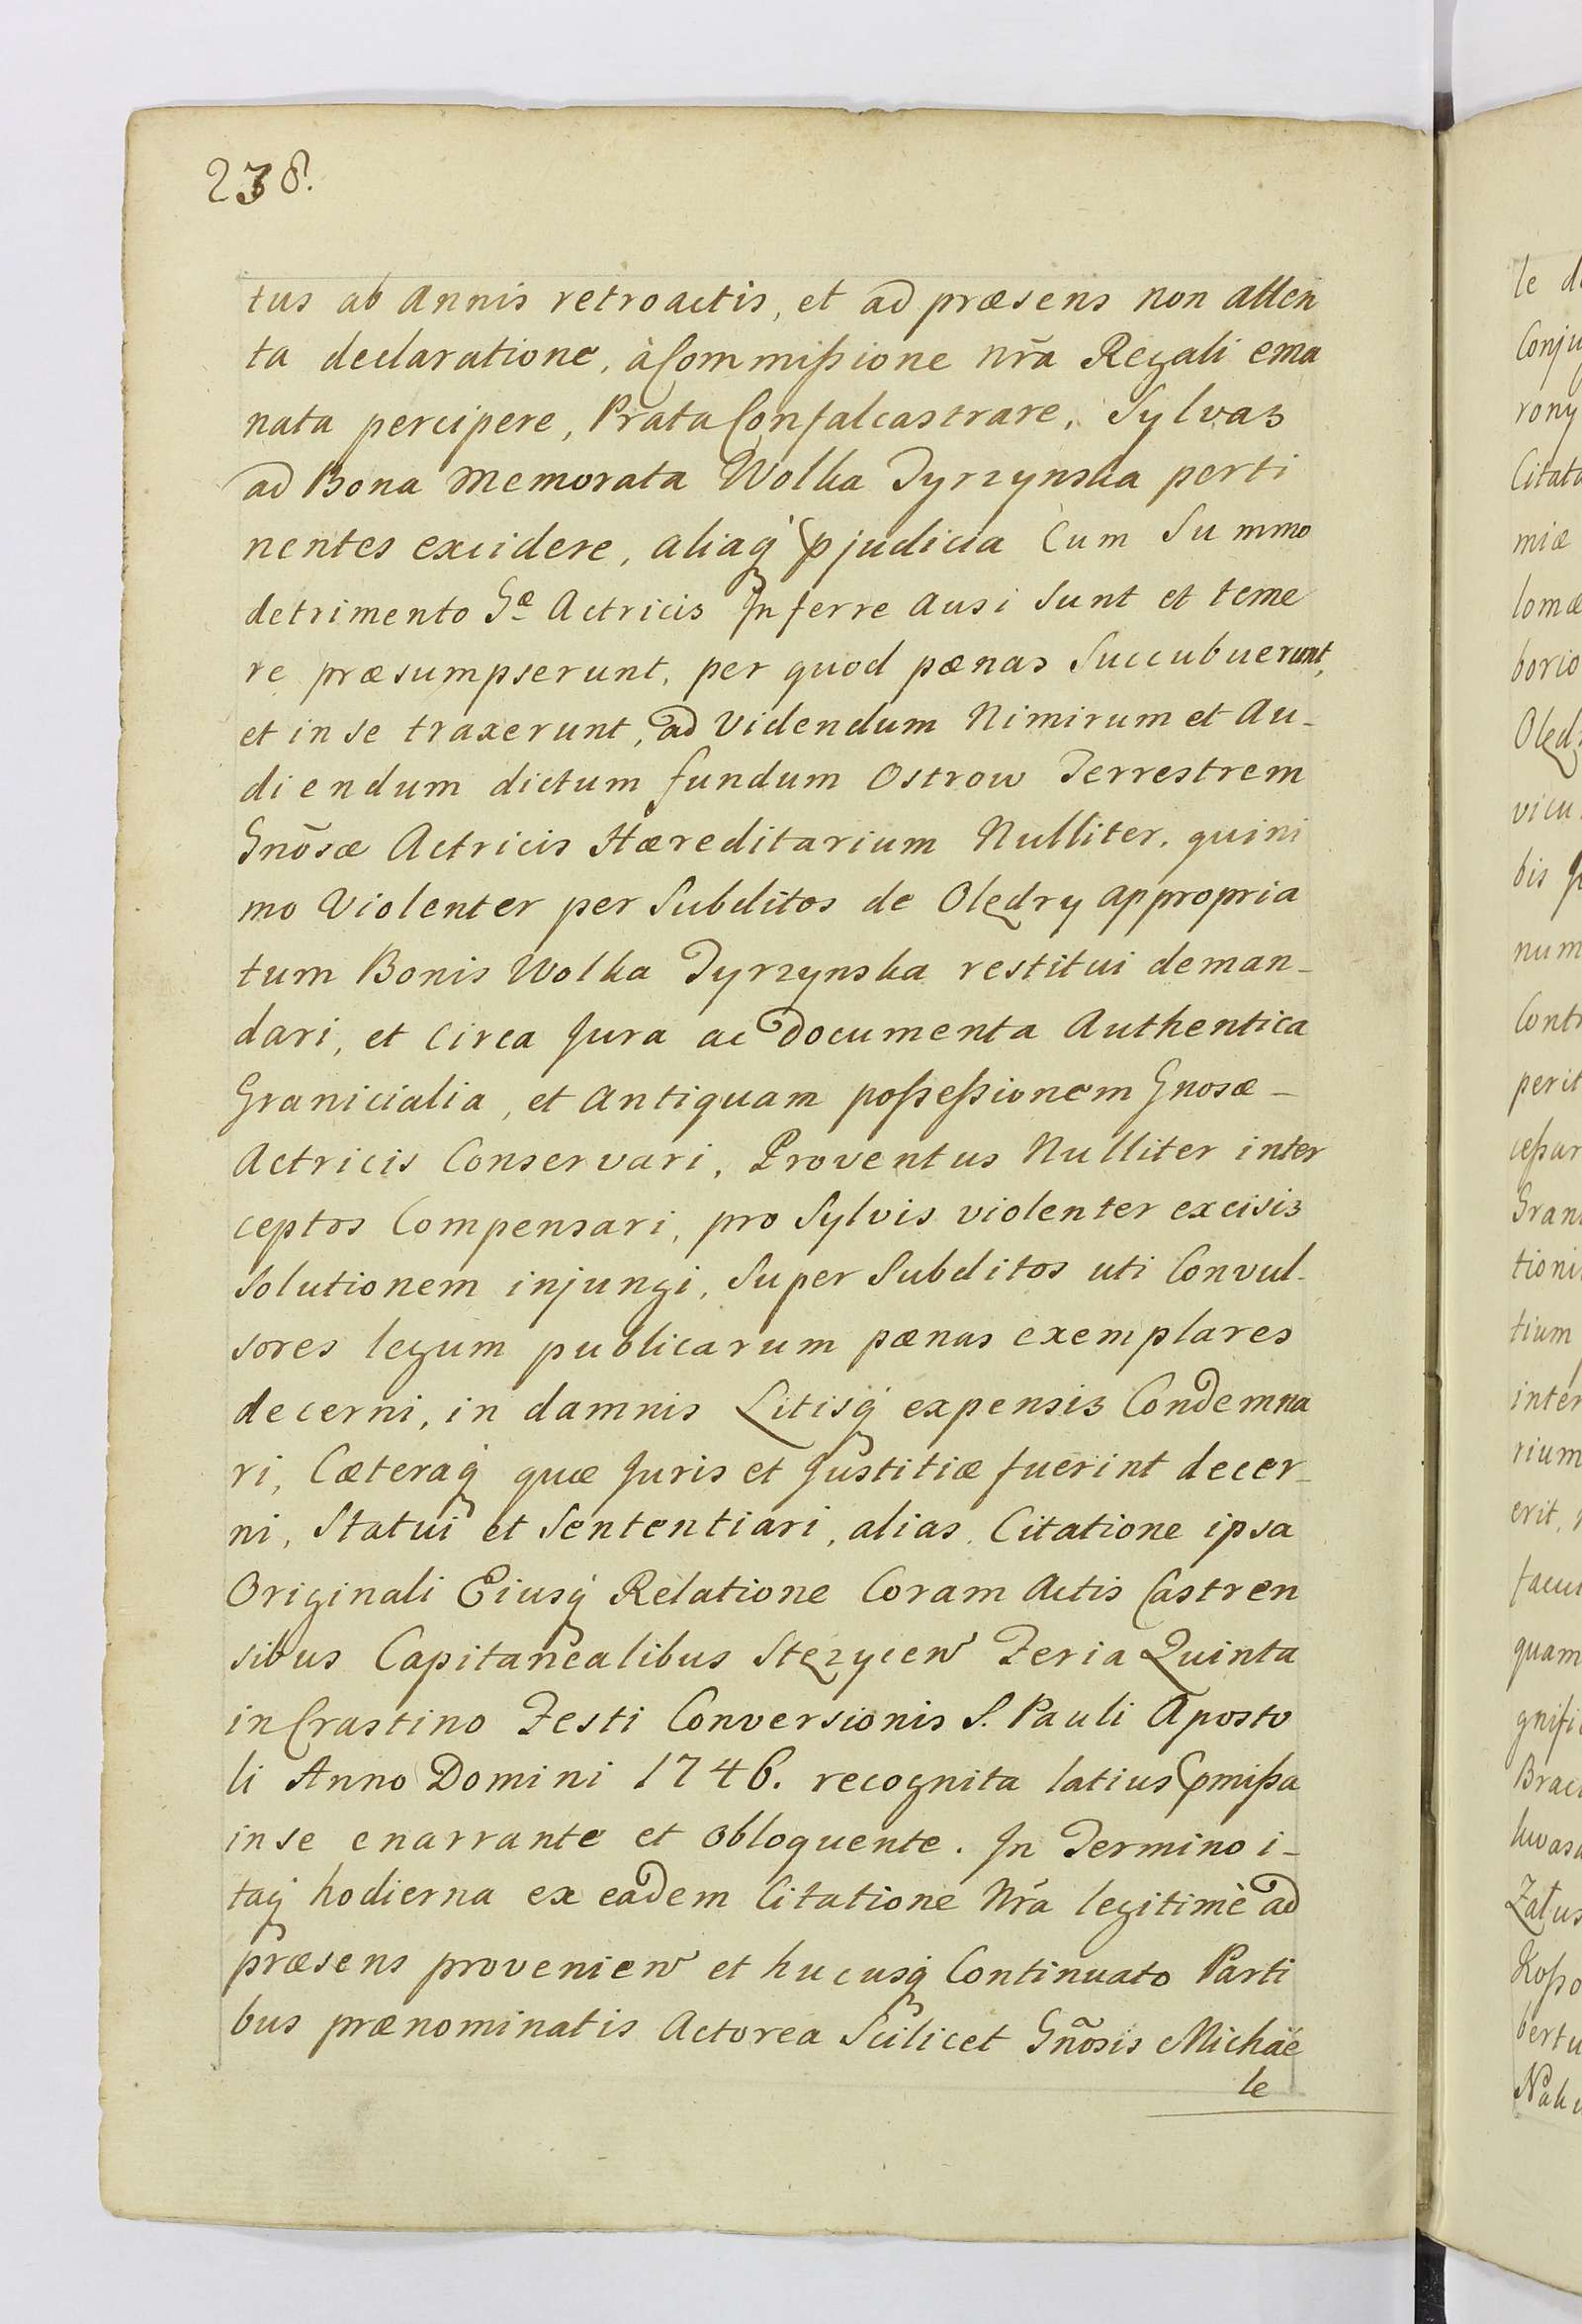 238.
tus ab Annis retroactis, et ad præsens non atten
ta declaratione, à Commißione nr̃a Regali ema
nata percipere, Prata Confalcastrare, Sylvas
ad Bona memorata Wolka Tyrzynska perti
nentes excidere, aliaq́ p̱judicia Cum Summo
detrimento Gæ Actricis Inferre Ausi Sunt et teme
re præsumpserunt, per quod pœnas Succubuerunt,
et in se traxerunt, ad Videndum Nimirum et Au-
diendum dictum fundum Ostrow Terrestrem
Gnõsæ Actricis Hæreditarium Nulliter, quini
mo Violenter per Subditos de Olędry appropria
tum Bonis Wolka Tyrzynska restitui deman-
dari, et Circa Jura ac Documenta Authentica
Granicialia, et Antiquam poßeßionem Gnosæ -
Actricis Conservari, Proventus Nulliter inter
ceptos Compensari, pro Sylvis violenter excisis
Solutionem injungi, Super Subditos uti Convul-
sores legum publicarum pœnas exemplares
decerni, in damnis Litisq́ expensis Condemna
ri, Cæteraq́ quæ Juris et Justitiæ fuerint decer-
ni, Statui et Sententiari, alias Citatione ipsa
Originali Eiusq́ Relatione Coram Actis Castren
sibus Capitanealibus Stęzycen̄ Feria Quinta
in Crastino Festi Conversionis S. Pauli Aposto
li Anno Domini 1746. recognita latius p̱mißa
in se enarrante et obloquente. In Termino i-
taq́ hodierna ex eadem Citatione Nr̃a legitimè ad
præsens provenien̄ et hucusq́ Continuato Parti
bus prænominatis Actorea Scilicet Gnõsis Michaé
le
le d
Conju
rony
Citat
miæ
lomæ
borio
Olędz
vicu
bis
num
Contr
perit
ceßar
Gran
tioni
tium
inter
rium
erit,
facu
quam
gnifi
Brac
kwas
Załus
Koßo
bertu
Nak